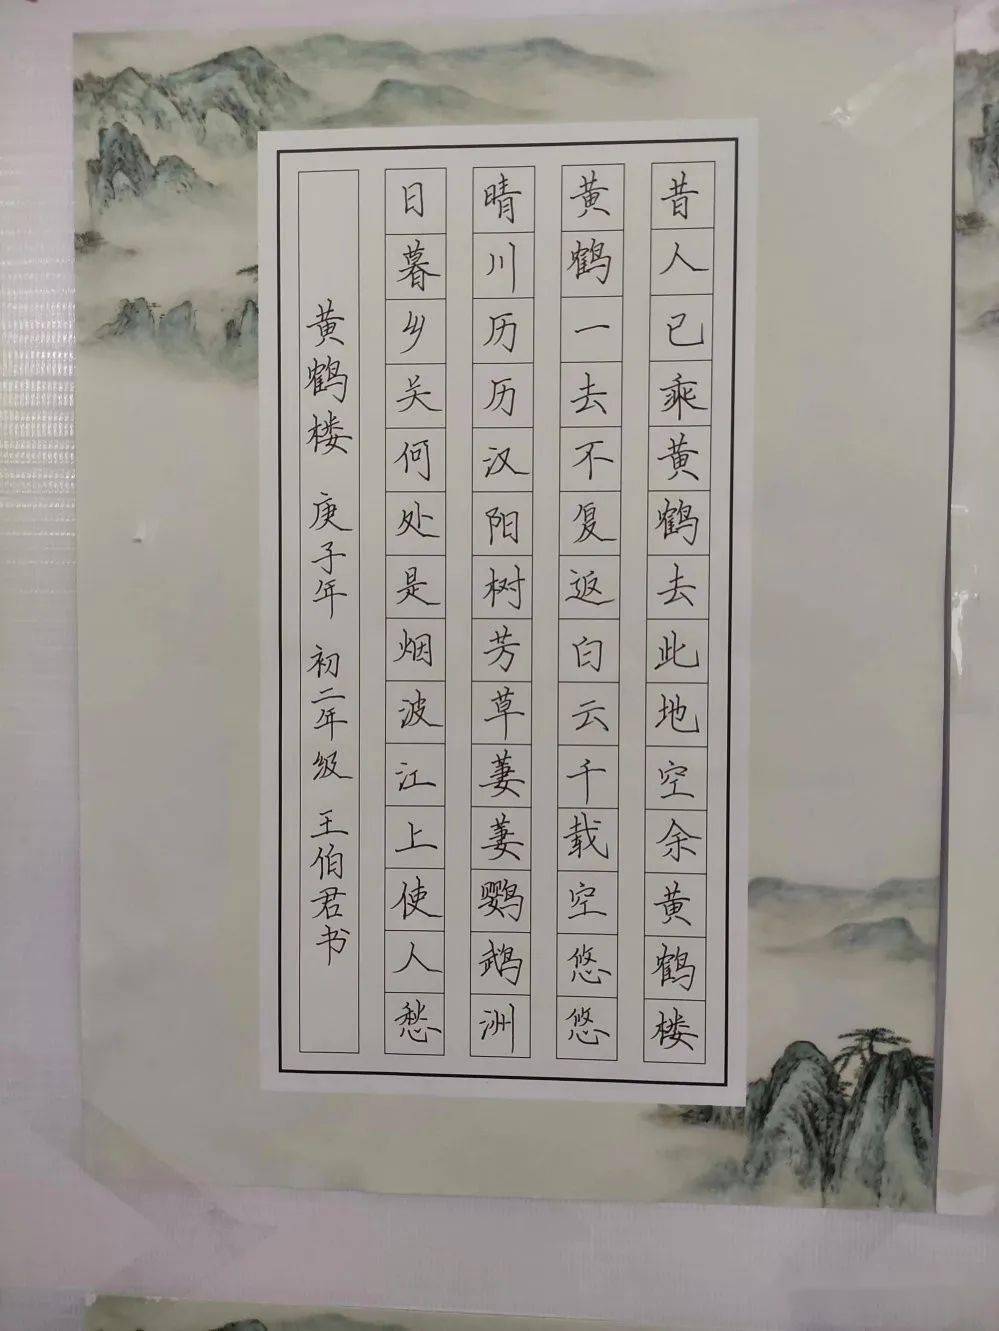 昔人已乘黄鹤去此地空余黄鹤楼
黄鹤一去不复返白云千载空悠悠
晴川历历汉阳树芳草萋萋鹦鹉洲
日暮乡关何处是烟波江上使人愁
黄鹤楼 庚子年 初二年级 王伯君书